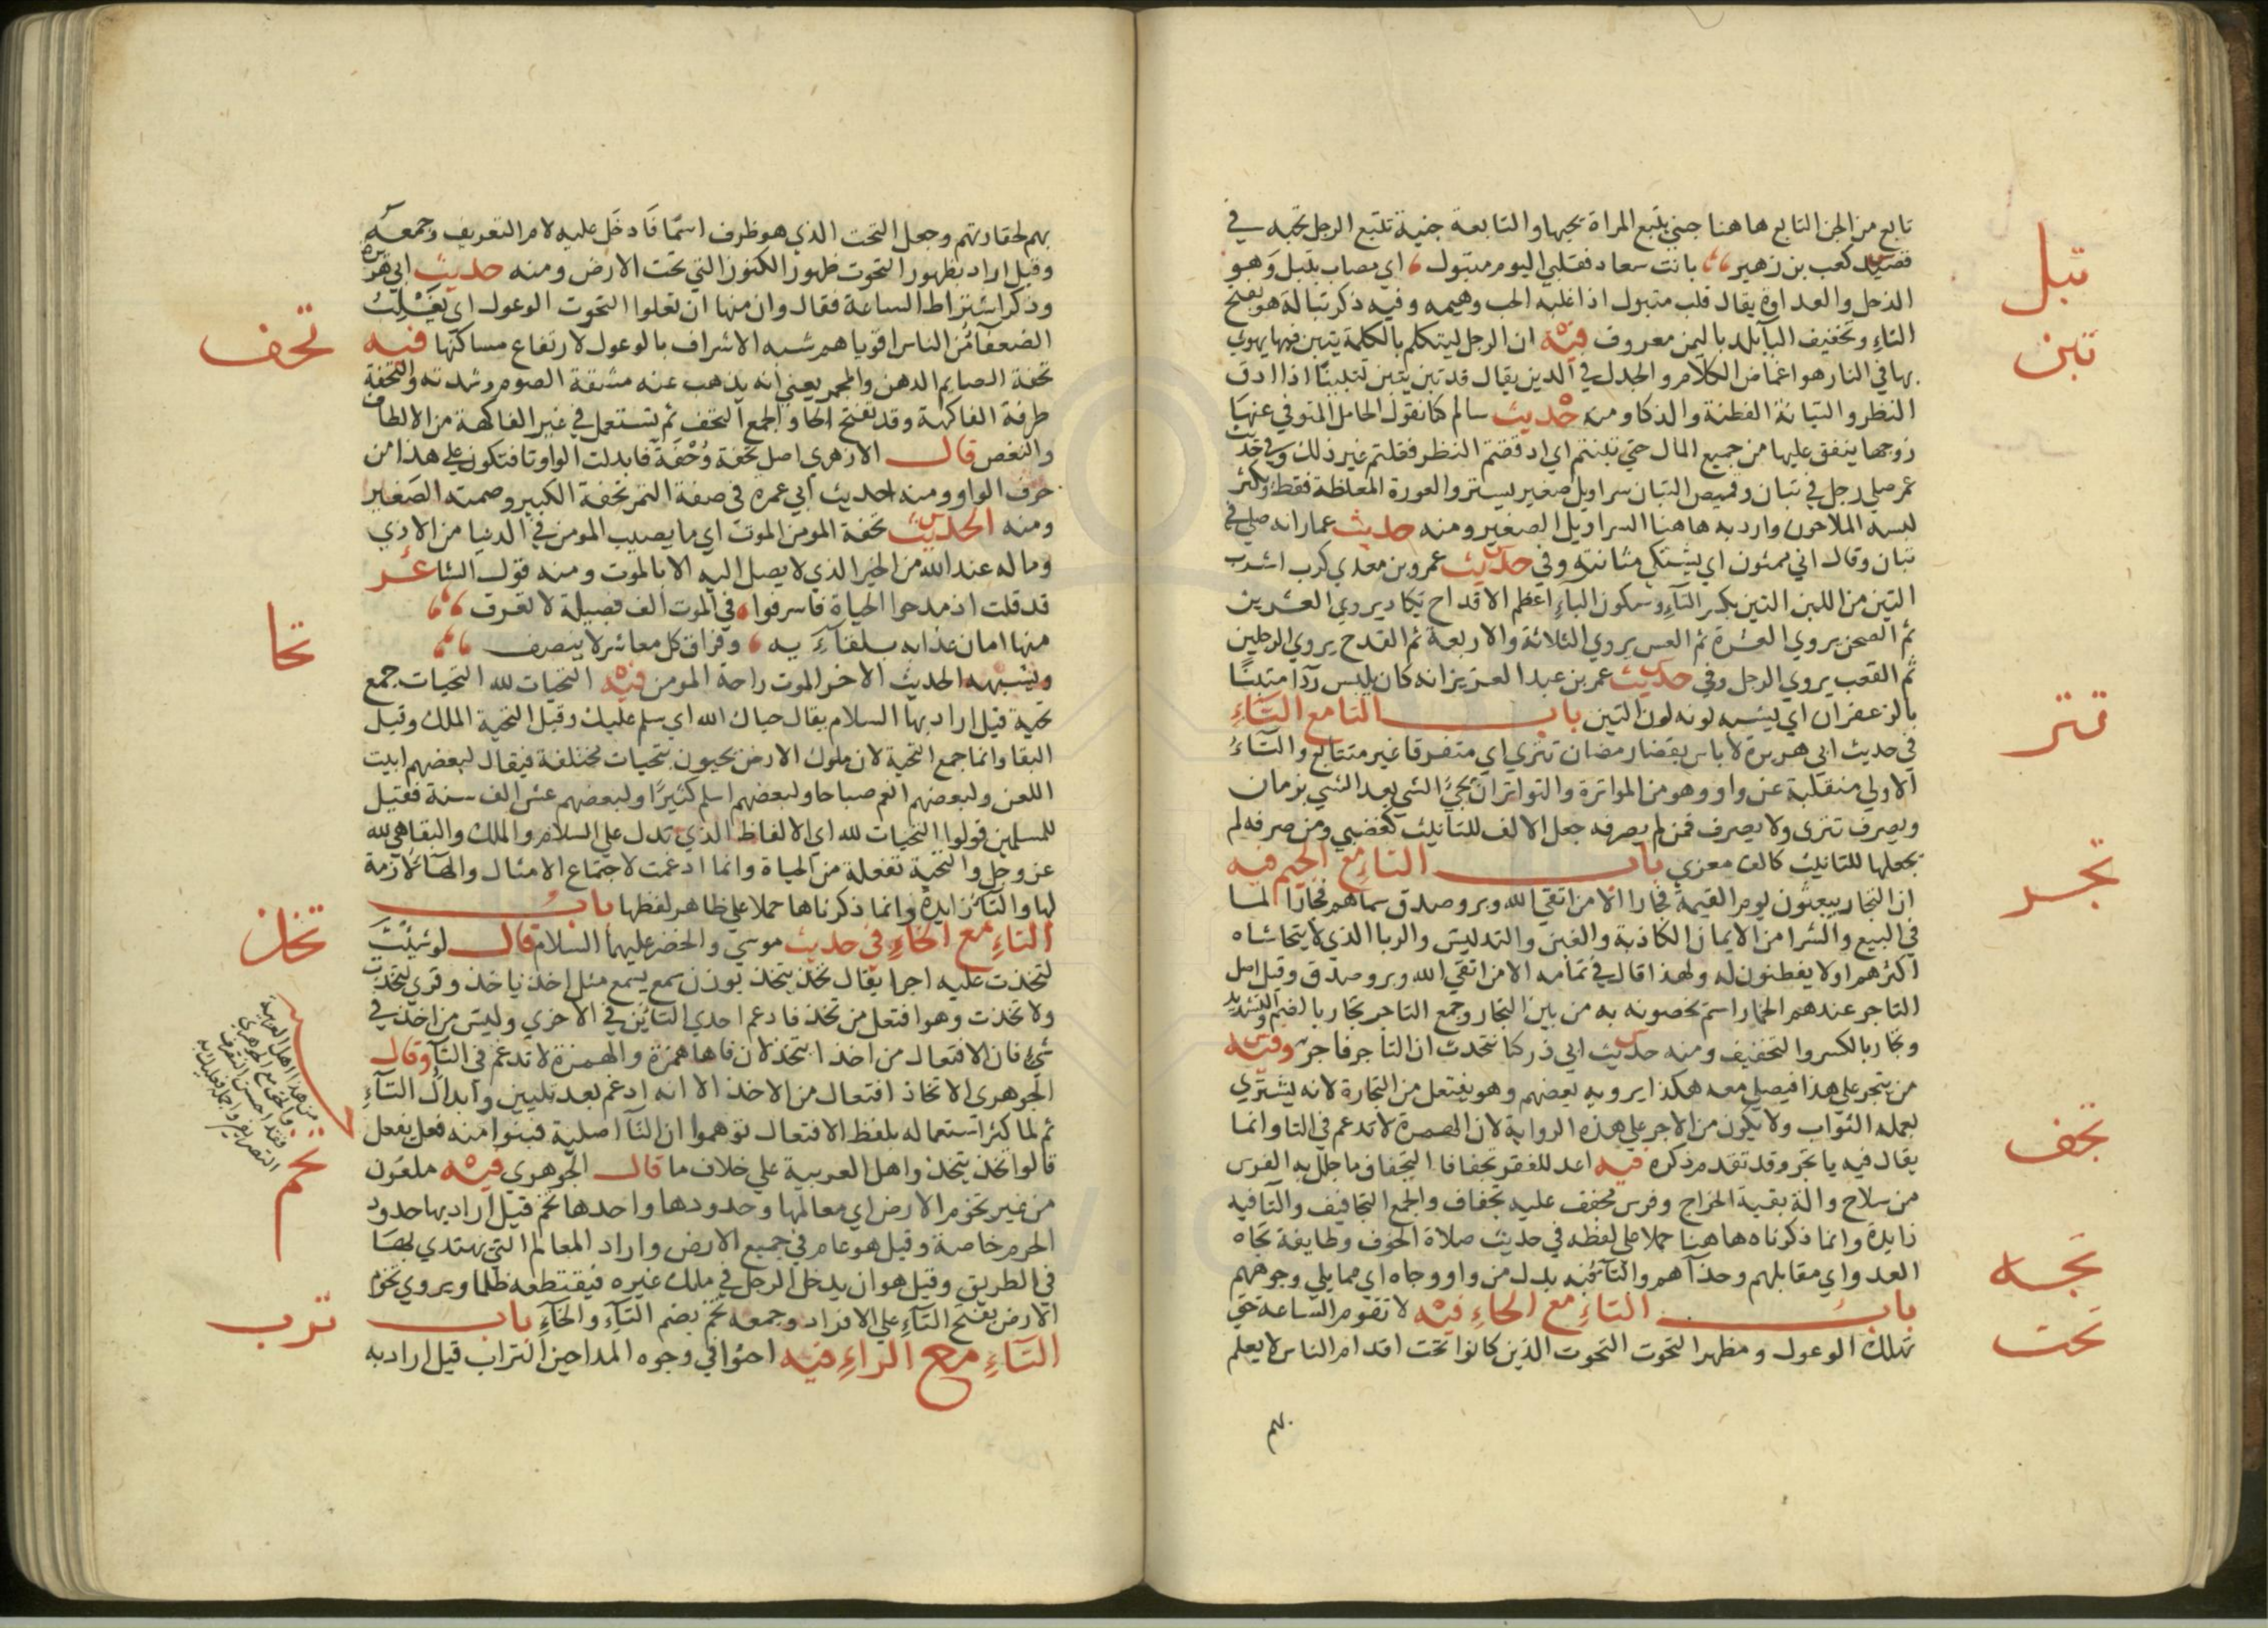 تابع من الجن التابع هاهنا جني يتبع المراة يحبها والتابعة جنية تتبع الرجل تحبه في
تبل
قصيد كعب بن زهير بانت سعاد فقلبي اليوم متبول اي مصاب بتبل وهو
الذحل والعداوة يقال قلب متبول اذا غلبه الحب وهيمه وفيه ذكر تبالة هو بفتح
تبن
التاء وتخفيف الباء بلد باليمن معروف فيه ان الرجل ليتكلم بالكلمة يتبن فيها يهوي
بها في النار هو اغماض الكلام والجدل في الدين يقال قد تبن يتبن تتبينا اذا ادق
النظر والتبانة الفطنة والذكا ومنه حديث سالم كنا نقول الحامل المتوفي عنها
زوجها ينفق عليها من جميع المال حتي تبنتم اي ادققتم النظر فقلتم غير ذلك وفي حديث
عمر صلي رجل في تبان وقميص التبان سراويل صغير يستر العورة المغلظة فقط ويكثر
لبسه الملاحون واراد به هاهنا السراويل الصغير ومنه حديث عمار انه صلي في
تبان وقال اني ممثون اي يشتكي مثانته وفي حديث عمرو بن معدي كرب اشرب
التبن من اللبن التبن بكسر التاء وسكون الباء اعظم الاقداح يكاد يروي العشرين
ثم الصحن يروي العشرة ثم العس يروي الثلاثة والاربعة ثم القدح يروي الرجلين
ثم القعب يروي الرجل وفي حديث عمر بن عبد العزيز انه كان يلبس ردا متبنا
بالزعفران اي يشبه لونه لون التبن باب التا مع التاء
تتر
في حديث ابي هريرة لا باس بقضا رمضان تتري اي متفرقا غير متتابع والتاء
الاولي منقلبة عن واو وهو من المواترة والتواتر ان يجيء الشي بعد الشي بزمان
ويصرف تتري ولا يصرف فمن لم يصرفه جعل الالف للتانيث كغضبي ومن صرفه لم
يجعلها للتانيث كالف معزي باب التاء مع الجيم فيه
تجر
ان التجار يبعثون يوم القيمة فجارا الا من اتقي الله وبر وصدق سماهم فجارا لما
في البيع والشرا من الايمان الكاذبة والغبن والتدليس والربا الذي لا يتحاشاه
اكثرهم اولا يفطنون له ولهذا قال في تمامه الا من اتقي الله وبر وصدق وقيل اصل
التاجر عندهم الخمار اسم يخصونه به من بين التجار وجمع التاجر تجار بالضم والتشديد
وتجار بالكسر والتخفيف ومنه حديث ابي ذر كنا نتحدث ان التاجر فاجر وفيه
من يتجر علي هذا فيصلي معه هكذا يرويه بعضهم وهو يفتعل من التجارة لانه يشتري
بعمله الثواب ولا يكون من الاجر علي هذه الرواية لان الهمزة لا تدغم في التا وانما
تجف
يقال فيه ياتجر وقد تقدم ذكره فيه اعد للفقر تجفافا التجفاف ما جلل به الفرس
من سلاح والة بقية الخراج وفرس مجفف عليه تجفاف والجمع التجافيف والتا فيه
زايدة وانما ذكرناه هاهنا حملا علي لفظه في حديث صلاة الخوف وطايفة تجاه
تجه
العدو اي مقابلهم وحذاهم والتاء فيه بدل من واو وجاه اي مما يلي وجوههم
باب التاء مع الحاء فيه لا تقوم الساعة حتي
تحت
تهلك الوعول وتظهر التحوت التحوت الذين كانوا تحت اقدام الناس لا يعلم
بهم
بهم لحقارتهم وجعل التحت الذي هو ظرف اسما فادخل عليه لام التعريف وجمعه
وقيل اراد بظهور التحوت ظهور الكنوز التي تحت الارض ومنه حديث ابي هريرة
وذكر اشراط الساعة فقال وان منها ان تعلوا التحوت الوعول اي يغلب
تحف
الضعفآ من الناس اقوياهم شبه الاشراف بالوعول لارتفاع مساكنها فيه
تحفة الصايم الدهن والمجمر يعني انه يذهب عنه مشقة الصوم وشدته والتحفة
طرفة الفاكهة وقد تفتح الحا والجمع التحف ثم تستعمل في غير الفاكهة من الالطاف
والنغص قال الازهري اصل تحفة وحفة فابدلت الواو تا فتكون علي هذا من
حرف الواو ومنه حديث ابي عمرة في صفة التمر تحفة الكبير وصمتة الصغير
ومنه الحديث تحفة المومن الموت اي ما يصيب المومن في الدنيا من الاذي
وما له عند الله من الخير الذي لا يصل اليه الا بالموت ومنه قول الشاعر
قد قلت اذ مدحوا الحياة فاسرفوا في الموت الف فضيلة لا تعرف
منها امان عذابه بلقائه وفراق كل معاشر لا ينصف
تحا
ويشبهه الحديث الاخر الموت راحة المومن فيه التحيات لله التحيات جمع
تحية قيل اراد بها السلام يقال حياك الله اي سلم عليك وقيل التحية الملك وقيل
البقا وانما جمع التحية لان ملوك الارض يحيون بتحيات مختلفة فيقال لبعضهم ابيت
اللعن ولبعضهم انعم صباحا ولبعضهم اسلم كثيرا ولبعضهم عش الف سنة فقيل
للمسلمين قولوا التحيات لله اي الالفاظ الذي تدل علي السلام والملك والبقا هي لله
عز وجل والتحية تفعلة من الحياة وانما ادغمت لاجتماع الامثال والهآ لازمة
لها والتآ زايدة وانما ذكرناها حملا علي ظاهر لفظها باب
تخذ
التاء مع الخاء في حديث موسي والخضر عليهما السلام قال لو شئت
لتخذت عليه اجرا يقال تخذ يتخذ بوزن سمع يسمع مثل اخذ ياخذ وقري لتخذت
ولاتخذت وهو افتعل من تخذ فادغم احدي التائين في الاخري وليس من اخذ في
شئ فان الافتعال من اخذ ائتخذ لان فاها همزة والهمزة لا تدغم في التآ وقال
الجوهري الاتخاذ افتعال من الاخذ الا انه ادغم بعد تليين وابدال التآء
ثم لما كثر استعماله بلفظ الافتعال توهموا ان التآ اصلية فبنوا منه فعل يفعل
تخم
قالوا تخذ يتخذ واهل العربية علي خلاف ما قال الجوهري فيه ملعون
من غير تخوم الارض اي معالمها وحدودها واحدها تخم قيل اراد بها حدود
الحرم خاصة وقيل هو عام في جميع الارض واراد المعالم التي يهتدي بها
في الطريق وقيل هو ان يدخل الرجل في ملك غيره فيقتطعه ظلما ويروي تخوم
الارض بفتح التآء علي الافراد وجمعه تخم بضم التآء والخآء باب
ترب
التاء مع الراء فيه احثوا في وجوه المداحين التراب قيل اراد به